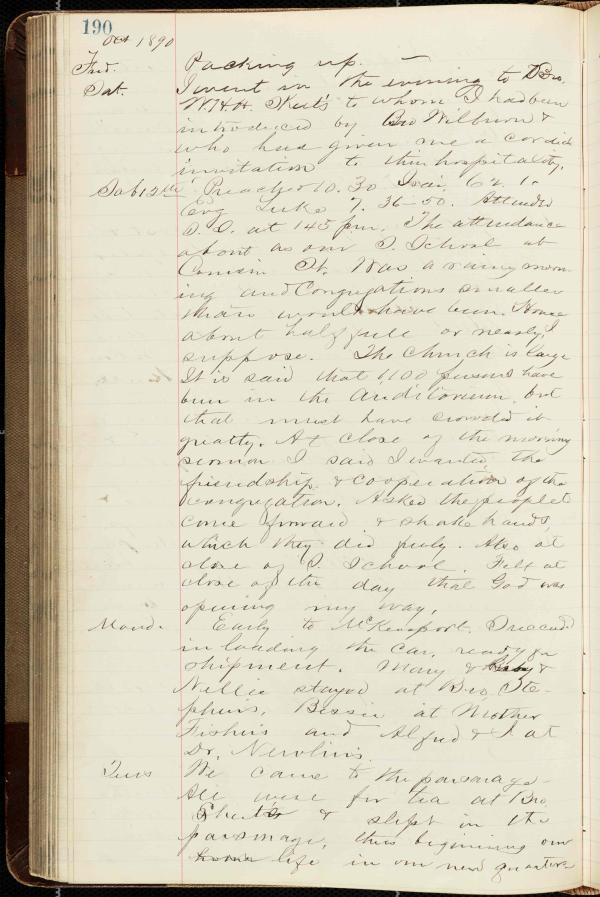 190
Oct 1890
Frid. Packing up. —
Sat. I went in the evening to Bro.
W.H.H. to whom I had been
introduced by Bro Wilburn &
who had given me a cordial
invitation to their hospitality.
Sab 12th Preached 10.30 Isai. 62.1.
Evg Luke 7. 36-50. Attended
S. S. at 145 p.m. The attendance
about as our S. School at
St. Was a rainy morn-
ing and Congregations smaller
than would have been. House
about half full or nearly, I
suppose. The Church is large
It is said that 1,100 persons have
been in the auditorium, but
that must have crowded it
greatly. At close of the morning
sermon I said I wanted the
friendship & cooperation of the
congregation. Asked the people to
come forward & shake hands,
which they did freely. Also at
close of S. School. Felt at
close of the day that God was
opening my way.
Mond. Early to McKeesport. Succeed'd
in loading the car, ready for
shipment. Mary & &
Nellie stayed at Bro. Ste-
phens, Bessie at Mother
Fishers and Alfred & I at
Dr. Newlins.
Tues We came to the parsonage-
All were for tea at Bro.
& slept in the
parsonage, thus beginning our
home life in our new quarters